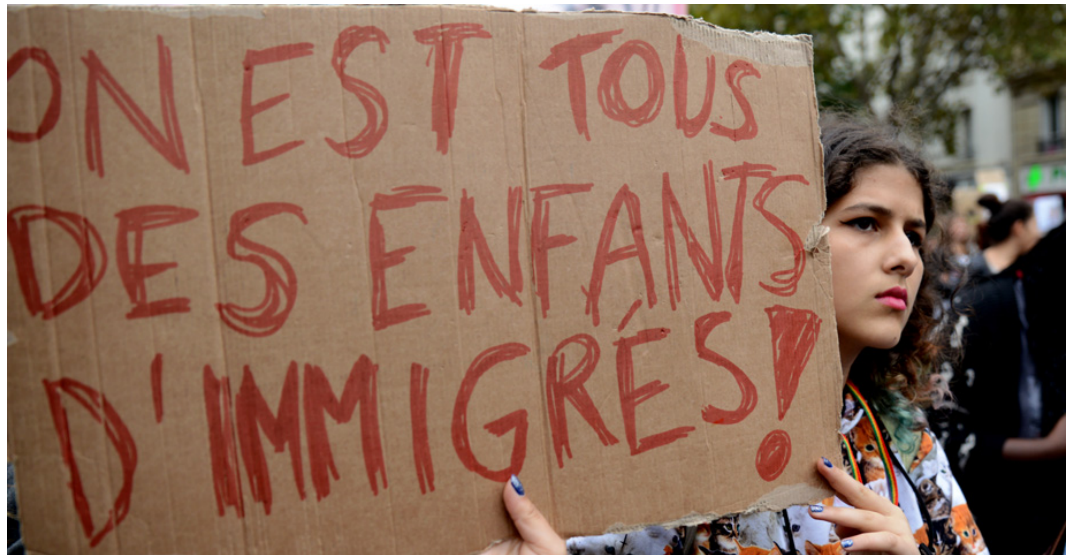 ON EST TOUS
DES ENFANTS
D'IMMIGRÉS!